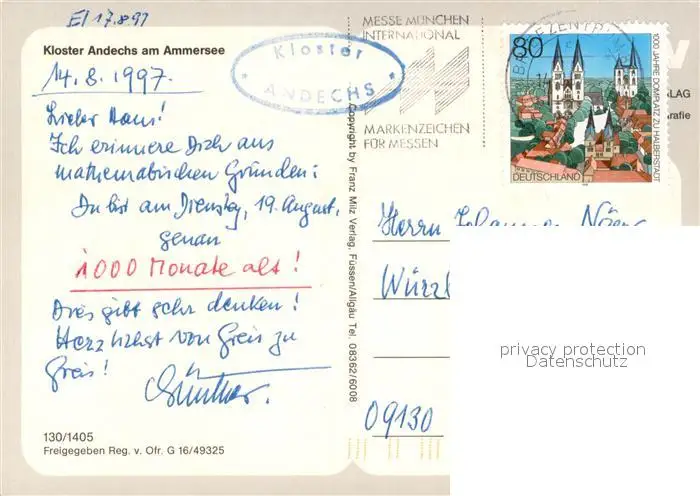 El 17.8.97
Kloster Andechs am Ammersee
14.8.1997.
Lieber Hans!
Ich erinnere Dich aus
mathematischen Gründen:
Du bist am Dienstag, 19. August,
genau
1000 Monate alt!
Dies gibt sehr denken!
Herzlichst von Greis zu
Greis!
Günther.
130/1405
Freigegeben Reg. v. Ofr. G 16/49325
Kloster
ANDECHS
MESSE MÜNCHEN
INTERNATIONAL
MARKENZEICHEN
FÜR MESSEN
Copyright by Franz Milz Verlag, Füssen/Allgäu Tel. 08362/6008
80
1000 JAHRE DOMPLATZ ZU HALBERSTADT
DEUTSCHLAND
BRIEFZENTR
LAG
rafie
Herrn Johannes
Würz
09130
privacy protection
Datenschutz